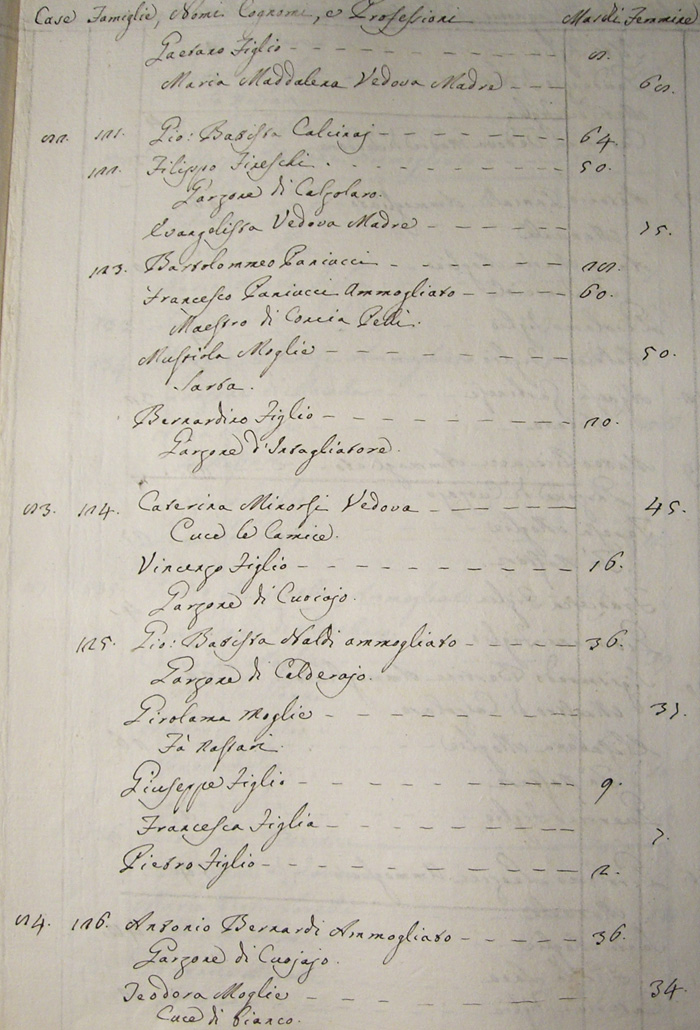 Case Famiglie, Nomi Cognomi, e Professioni Maschi Femmine
Gaetano Figlio
Maria Maddalena Vedova Madre
22. 121. Gio: Batista Calcinaj 64
122. Filippo Fineschi 50.
Garzone di Calzolaro.
Evangelista Vedova Madre 75.
123. Bartolommeo Paniacci
Francesco Paniacci Ammogliato 60.
Maestro di Concia Pelli.
Mustiola Moglie 50.
Sarta.
Bernardino Figlio 20.
Garzone d'Intagliatore.
23. 124. Caterina Minorsi Vedova 45.
Cuce le Camice.
Vincenzo Figlio 16.
Garzone di Cuoiajo.
125. Gio: Batista Naldi ammogliato 36.
Garzone di Calderajo.
Girolama Moglie 37.
Fà Nastari.
Giuseppe Figlio 9.
Francesca Figlia 7.
Pietro Figlio 2.
24. 126. Antonio Bernardi Ammogliato 36.
Garzone di Cuojajo.
Teodora Moglie 34.
Cuce di bianco.